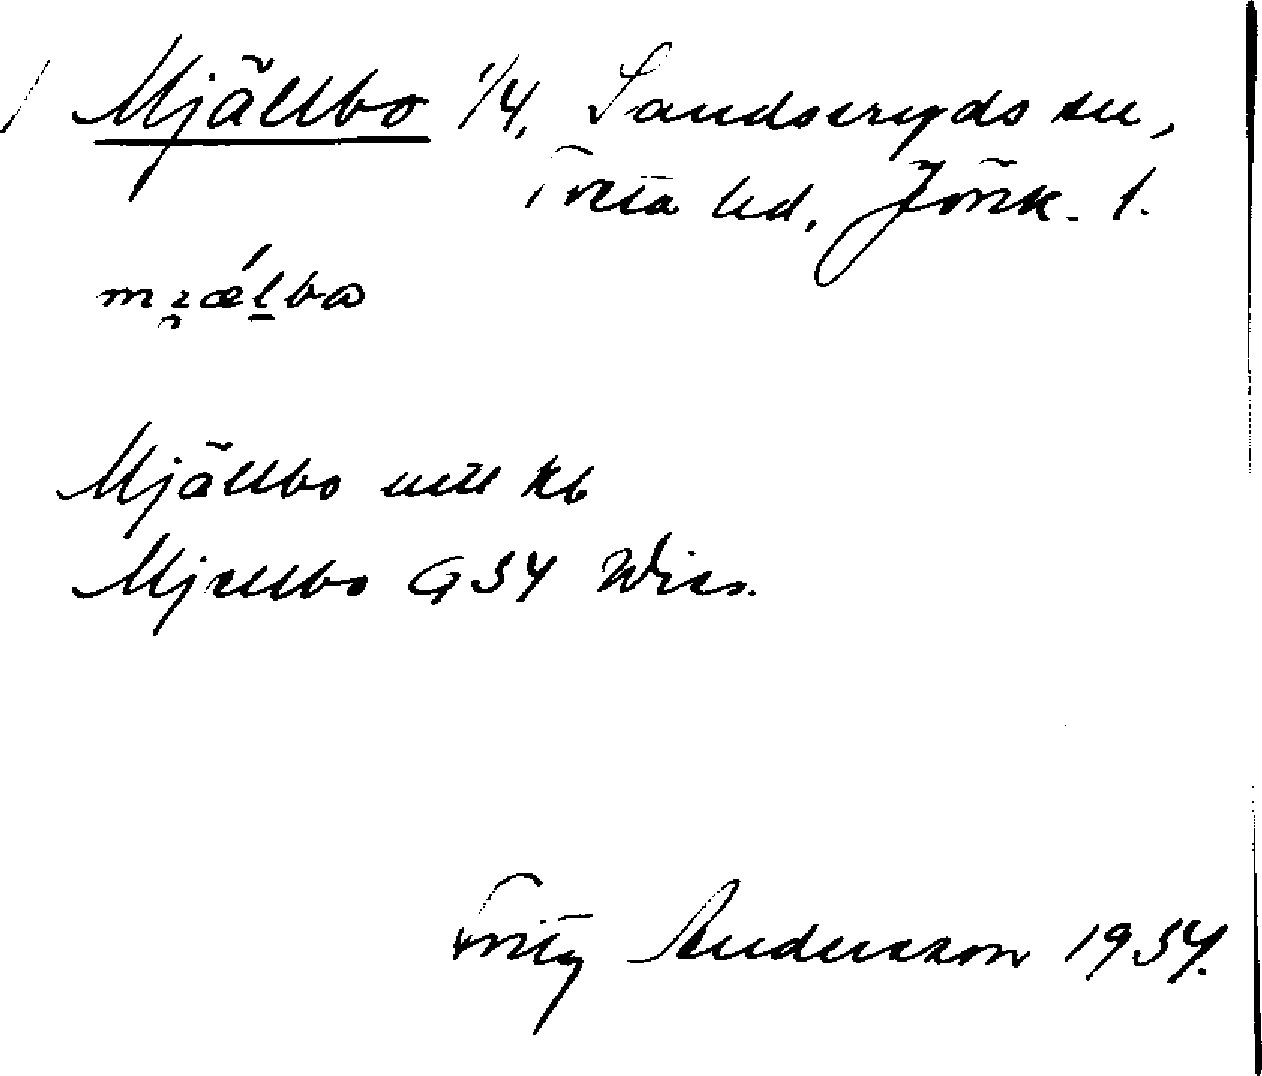 Mjällbo 1/4, Sandseryds sn,
Tveta hd, Jönk. l.
Mjällbo
Mjällbo G34 Wies.
Fritz Andersson 1934.